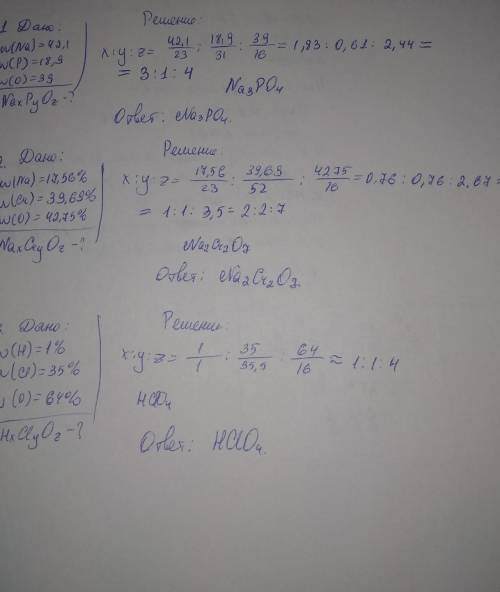 1 Дано:
w(Na)=42,1
w(P)=18,9
w(O)=39
NaxPyOz-?
Решение:
x:y:z= 42,1/23 : 18,9/31 : 39/16 = 1,83 : 0,61 : 2,44 =
= 3:1:4
Na3PO4
Ответ: Na3PO4.
Дано:
w(Na)=17,56%
w(Cr)=39,69%
w(O)=42,75%
NaxCryOz-?
Решение:
x:y:z= 17,56/23 : 39,69/52 : 42,75/16 = 0,76 : 0,76 : 2,67 =
= 1:1:3,5 = 2:2:7
Na2Cr2O7
Ответ: Na2Cr2O7.
Дано:
w(H)=1%
w(Cl)=35%
w(O)=64%
HxClyOz-?
Решение:
x:y:z= 1/1 : 35/35,5 : 64/16 ≈ 1:1:4
HClO4
Ответ: HClO4.